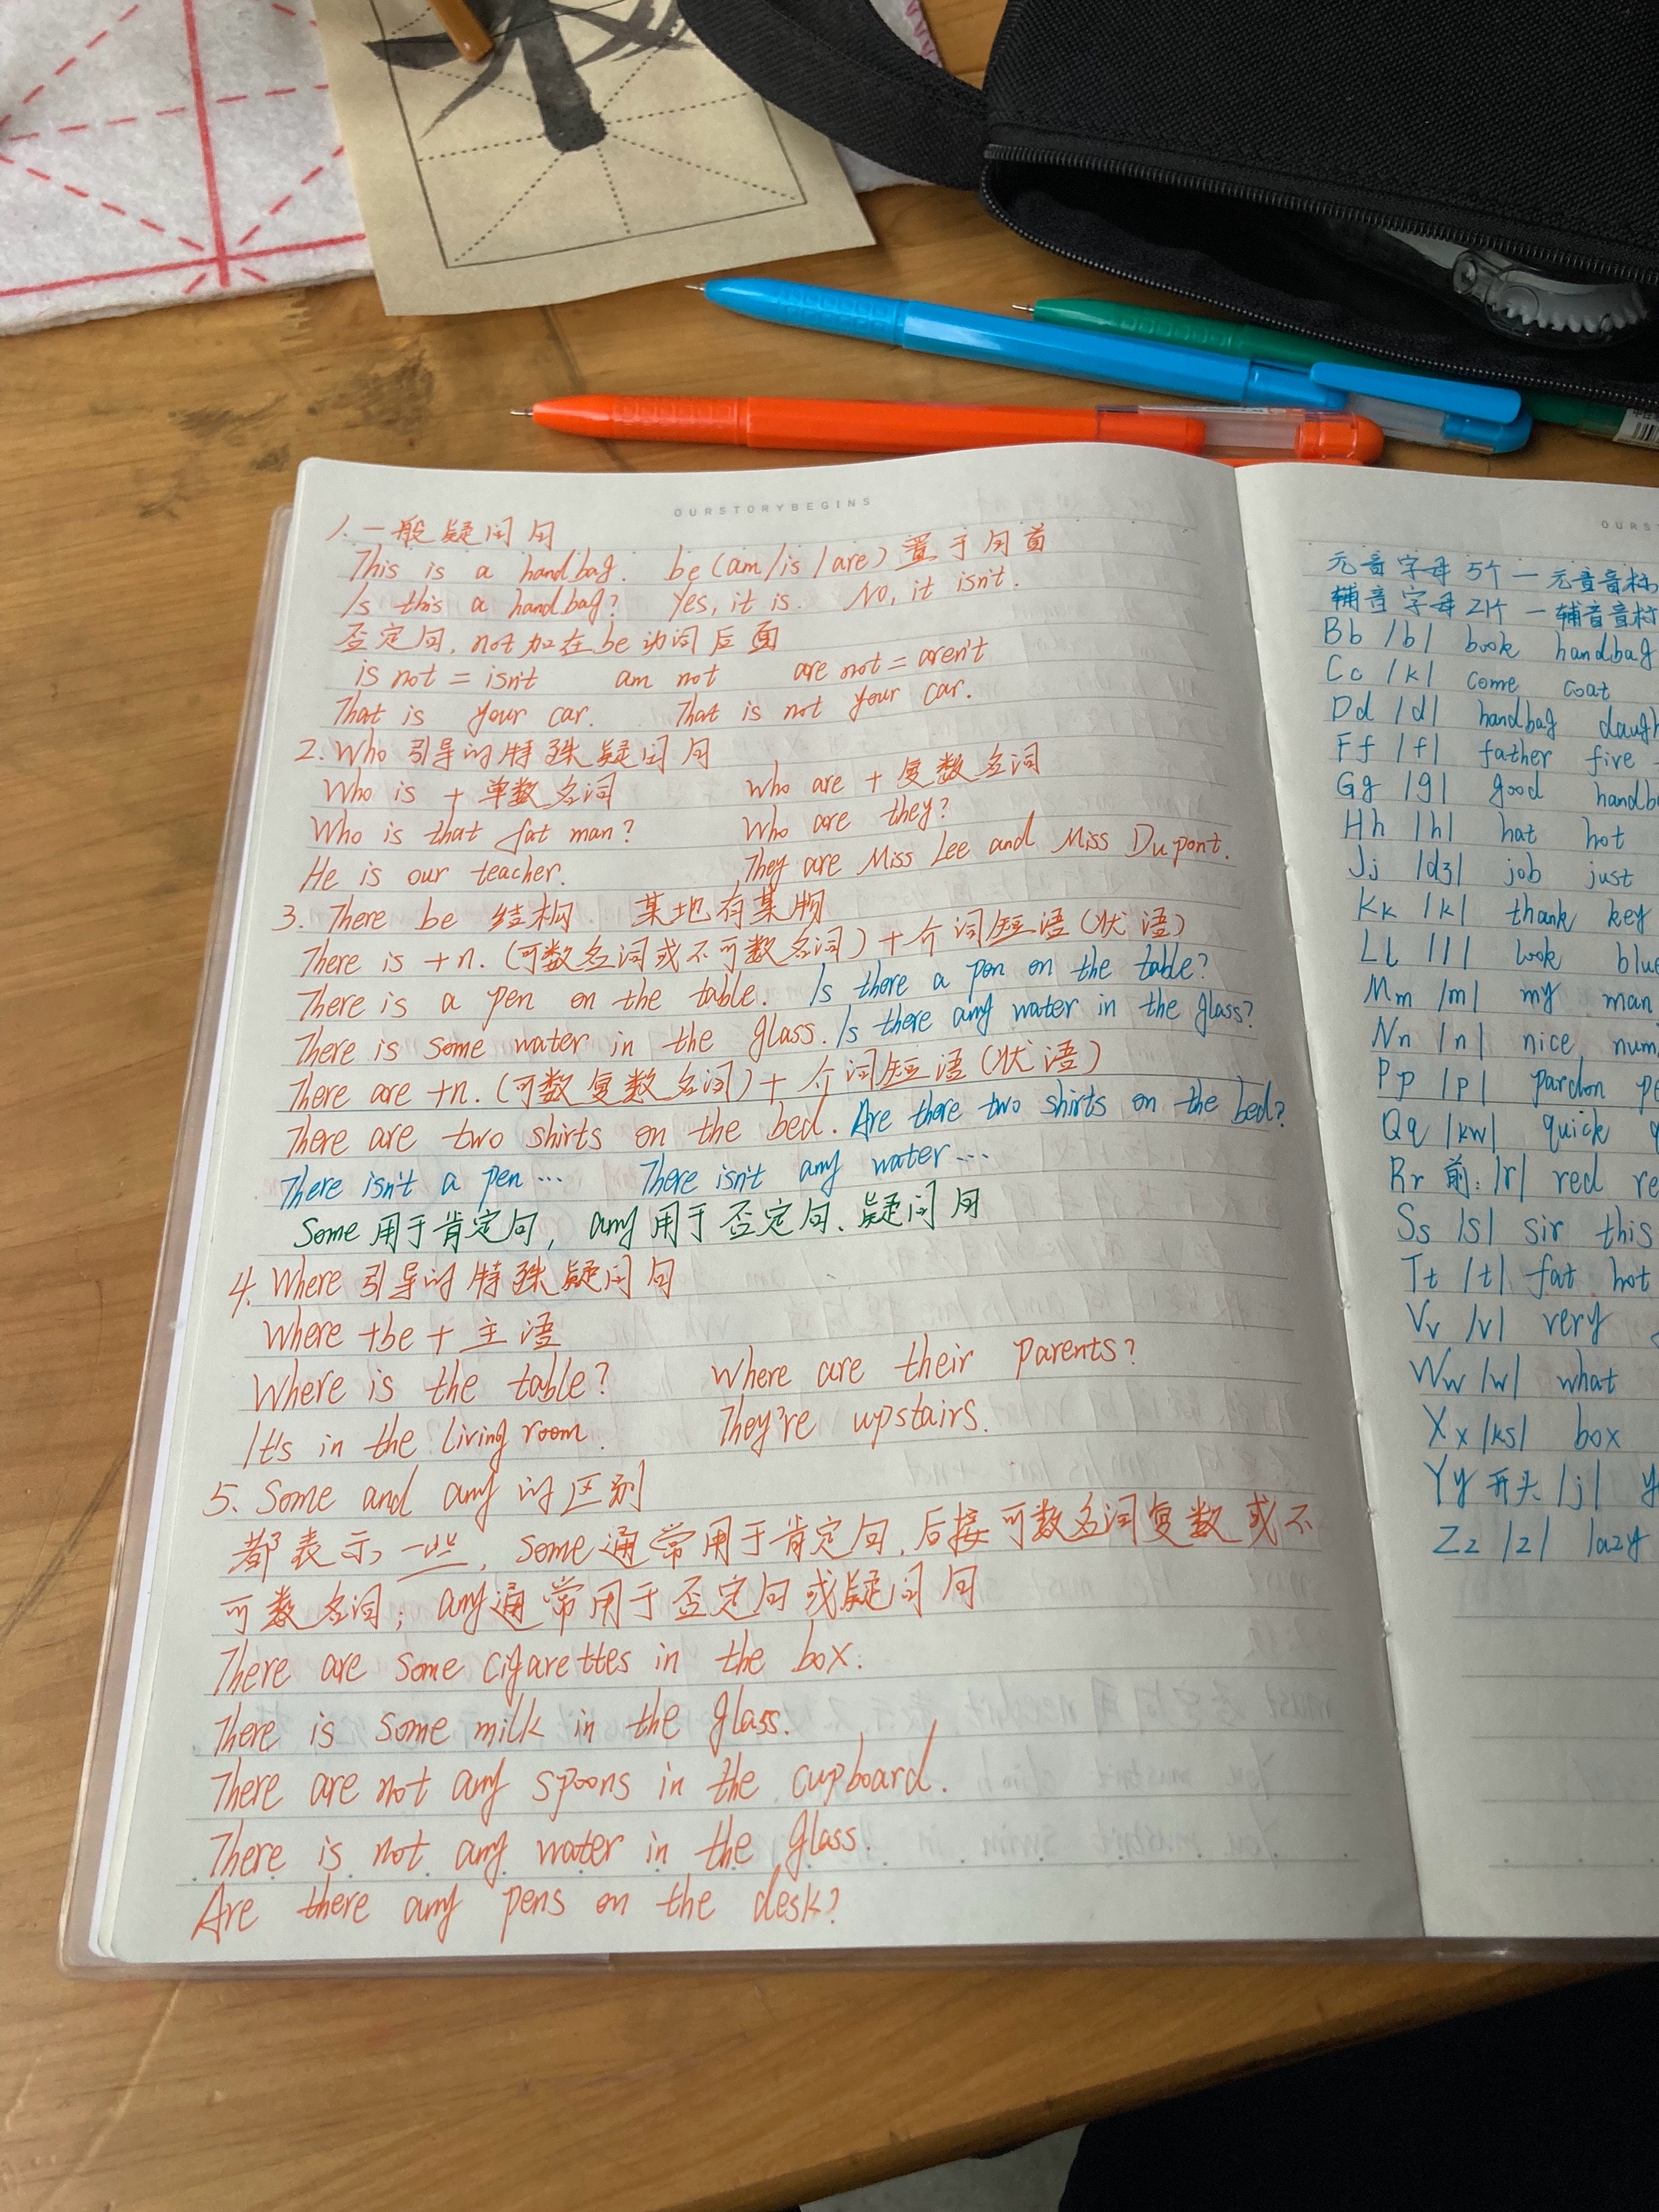 OURSTORYBEGINS
1.一般疑问句
This is a handbag. be(am/is/are)置于句首
Is this a handbag? Yes, it is. No, it isn't.
否定句,not加在be动词后面
is not = isn't am not are not = aren't
That is your car. That is not your car.
2. Who 引导的特殊疑问句
Who is + 单数名词 Who are + 复数名词
Who is that fat man? Who are they?
He is our teacher. They are Miss Lee and Miss Dupont.
3. There be 结构 某地有某物
There is +n.(可数名词或不可数名词)+介词短语(状语)
There is a pen on the table. Is there a pen on the table?
There is some water in the glass. Is there any water in the glass?
There are +n.(可数复数名词)+ 介词短语(状语)
There are two shirts on the bed. Are there two shirts on the bed?
There isn't a pen... There isn't any water...
Some 用于肯定句, any 用于否定句、疑问句
4. Where 引导的特殊疑问句
Where +be + 主语
Where is the table? Where are their parents?
It's in the living room. They're upstairs.
5. Some and any 的区别
都表示一些, some通常用于肯定句,后接可数名词复数或不
可数名词; any通常用于否定句或疑问句
There are some cigarettes in the box.
There is some milk in the glass.
There are not any spoons in the cupboard.
There is not any water in the glass.
Are there any pens on the desk?
OURS
元音字母5个—元音音标
辅音字母21个—辅音音标
Bb /b/ book handbag
Cc /k/ come coat
Dd /d/ handbag daugh
Ff /f/ father five
Gg /g/ good handb
Hh /h/ hat hot
Jj /dʒ/ job just
Kk /k/ thank key
Ll /l/ look blue
Mm /m/ my man
Nn /n/ nice num
Pp /p/ pardon pe
Qq /kw/ quick q
Rr 前:/r/ red re
Ss /s/ sir this
Tt /t/ fat hot
Vv /v/ very
Ww /w/ what
Xx /ks/ box
Yy 开头 /j/ y
Zz /z/ lazy